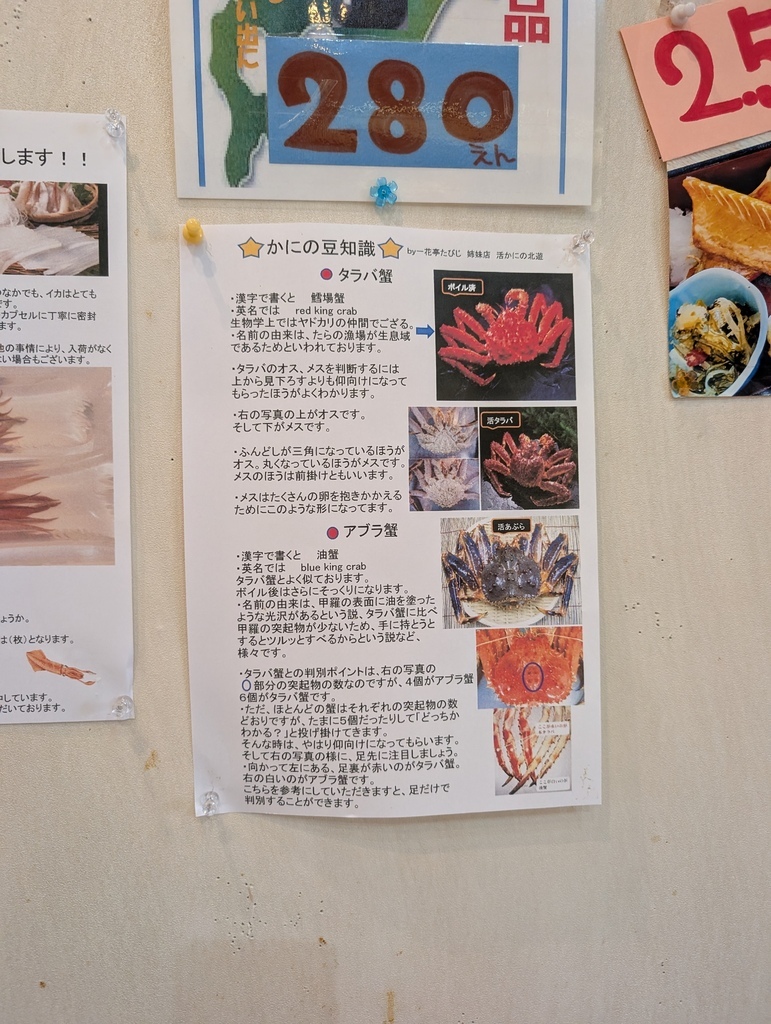 280
えん
2.5
します！！
なかでも、イカはとても
です。
カプセルに丁寧に密封
ます。
他の事情により、入荷がなく
ない場合もございます。
ょうか。
は(枚)となります。
しています。
だいております。
かにの豆知識
by一花亭たびじ 姉妹店 活かにの北遊
タラバ蟹
・漢字で書くと 鱈場蟹
・英名では red king crab
生物学上ではヤドカリの仲間でござる。
・名前の由来は、たらの漁場が生息域
であるためといわれております。
・タラバのオス、メスを判断するには
上から見下ろすよりも仰向けになって
もらったほうがよくわかります。
・右の写真の上がオスです。
そして下がメスです。
・ふんどしが三角になっているほうが
オス。丸くなっているほうがメスです。
メスのほうは前掛けともいいます。
・メスはたくさんの卵を抱きかかえる
ためにこのような形になってます。
ボイル済
活タラバ
アブラ蟹
・漢字で書くと 油蟹
・英名では blue king crab
タラバ蟹とよく似ております。
ボイル後はさらにそっくりになります。
・名前の由来は、甲羅の表面に油を塗った
ような光沢があるという説、タラバ蟹に比べ
甲羅の突起物が少ないため、手に持とうと
するとツルッとすべるからという説など、
様々です。
・タラバ蟹との判別ポイントは、右の写真の
部分の突起物の数なのですが、4個がアブラ蟹
6個がタラバ蟹です。
・ただ、ほとんどの蟹はそれぞれの突起物の数
どおりですが、たまに5個だったりして「どっちか
わかる？」と投げ掛けてきます。
そんな時は、やはり仰向けになってもらいます。
そして右の写真の様に、足先に注目しましょう。
・向かって左にある、足裏が赤いのがタラバ蟹。
右の白いのがアブラ蟹です。
こちらを参考にしていただきますと、足だけで
判別することができます。
活あぶら